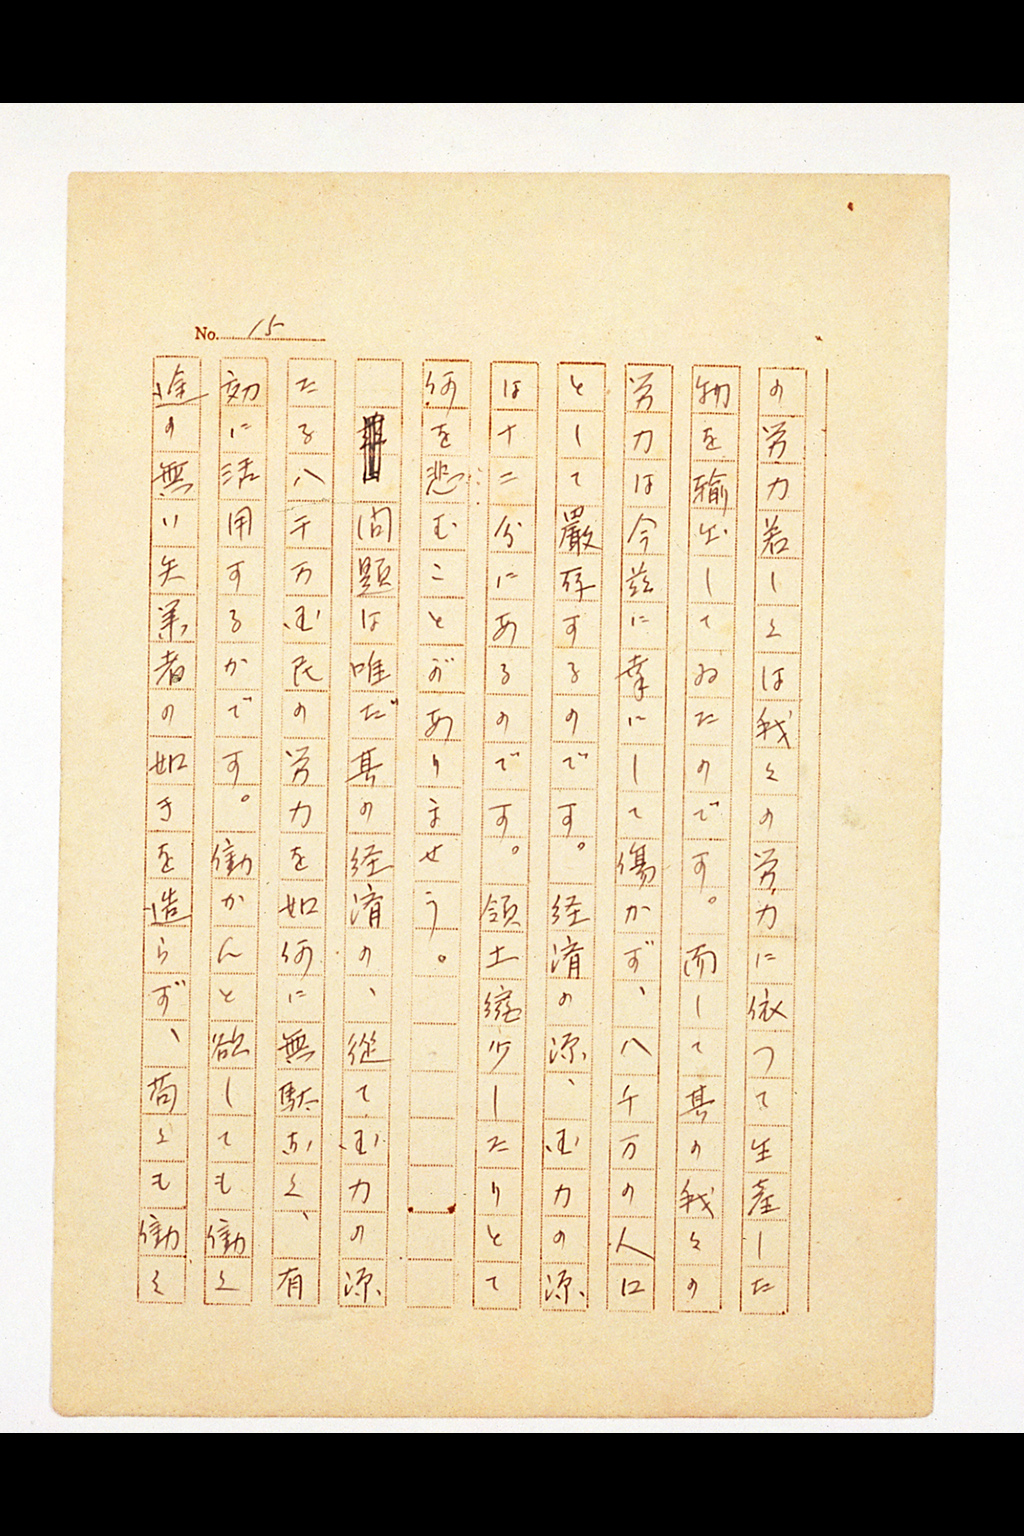 No. 15
の労力若しくは我々の労力に依つて生産した
物を輸出してゐたのです。而して其の我々の
労力は今玆に幸にして傷かず、八千万の人口
として嚴存するのです。経済の源、国力の源
は十二分にあるのです。領土縮少したりとて
何を悲むことがありませう。
問題は唯だ其の経済の、從て国力の源
たる八千万国民の労力を如何に無駄なく、有
効に活用するかです。働かんと欲しても働く
途の無い失業者の如きを造らず、苟くも働く